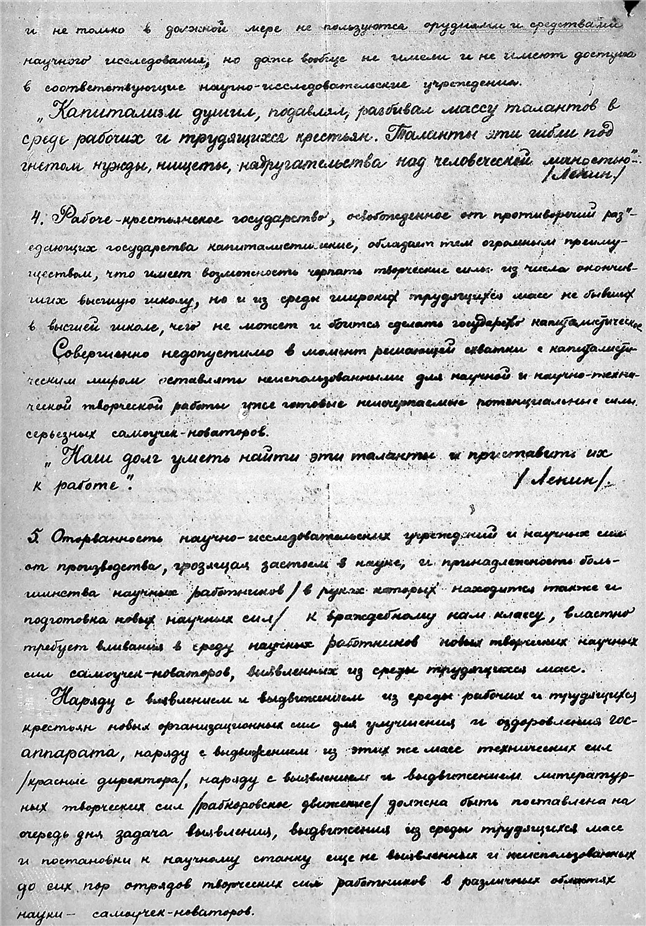 и не только в должной мере не пользуются орудиями и средствами
научного исследования, но даже вообще не имели и не имеют доступа
в соответствующие научно-исследовательские учреждения.
„Капитализм душил, подавлял, разбивал массу талантов в
среде рабочих и трудящихся крестьян. Таланты эти гибли под
гнетом нужды, нищеты, надругательства над человеческой личностью".
/Ленин/
4. Рабоче-крестьянское государство, освобожденное от противоречий раз"-
едающих государства капиталистические, обладает тем огромным преиму-
ществом, что имеет возможность черпать творческие силы из числа окончив-
ших высшую школу, но и из среды широких трудящихся масс не бывших
в высшей школе, чего не может и боится сделать государство капиталистическое
Совершенно недопустимо в момент решающей схватки с капиталисти-
ческим миром оставлять неиспользованными для научной и научно-техни-
ческой творческой работы уже готовые неисчерпаемые потенциальные силы
серьезных самоучек-новаторов.
„Наш долг уметь найти эти таланты и приставить их
к работе". /Ленин/.
5. Оторванность научно-исследовательских учреждений и научных сил
от производства, грозящая застоем в науке, и принадлежность боль-
шинства научных работников /в руках которых находится также и
подготовка новых научных сил/ к враждебному нам классу, властно
требует вливания в среду научных работников новых творческих научных
сил самоучек-новаторов, выявленных из среды трудящихся масс.
Наряду с выявлением и выдвижением из среды рабочих и трудящихся
крестьян новых организационных сил для улучшения и оздоровления гос-
аппарата, наряду с выдвижением из этих же масс технических сил
/красные директора/, наряду с выявлением и выдвижением литератур-
ных творческих сил /рабкоровское движение/ должна быть поставлена на
очередь дня задача выявления, выдвижения из среды трудящихся масс
и постановки к научному станку еще не выявленных и неиспользованных
до сих пор отрядов творческих сил работников в различных областях
науки - самоучек-новаторов.